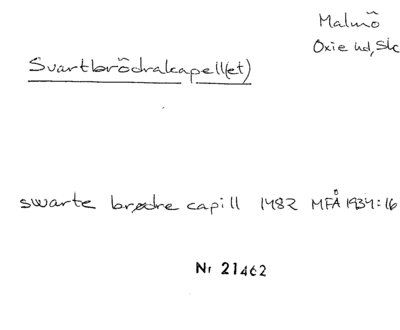 Malmö
Oxie hd, Sk
Svartbrödrakapell(et)
swarte brødre capill 1482 MFÅ 1934:16
Nr 21462